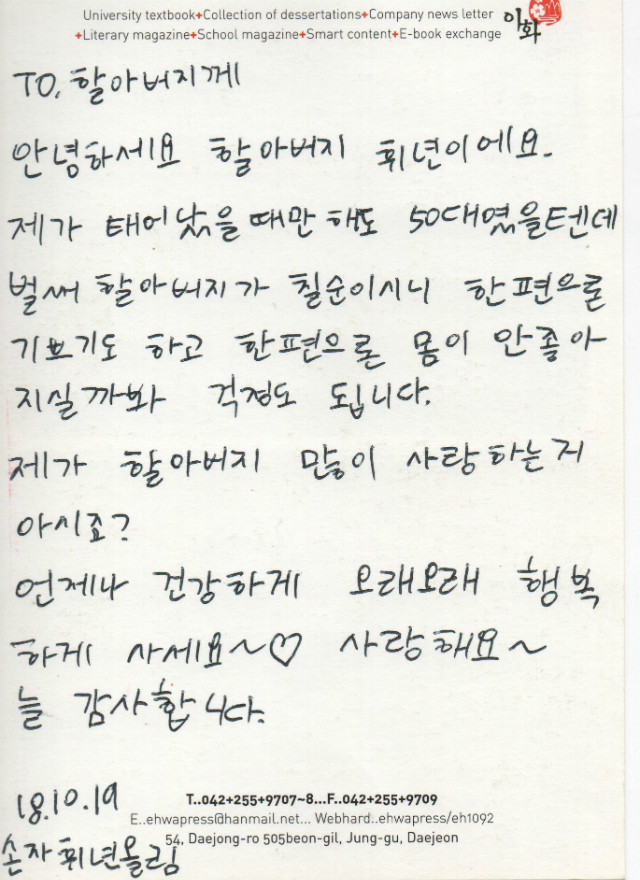 University textbook+Collection of dessertations+Company news letter
+Literary magazine+School magazine+Smart content+E-book exchange
이화
TO. 할아버지께
안녕하세요 할아버지 휘년이에요.
제가 태어났을때만 해도 50대였을텐데
벌써 할아버지가 칠순이시니 한편으론
기쁘기도 하고 한편으론 몸이 안좋아
지실까봐 걱정도 됩니다.
제가 할아버지 많이 사랑하는거
아시죠?
언제나 건강하게 오래오래 행복
하게 사세요~♡ 사랑해요~
늘 감사합니다.
18.10.19
손자 휘년올림
T..042+255+9707~8...F..042+255+9709
E..ehwapress@hanmail.net... Webhard..ehwapress/eh1092
54, Daejong-ro 505beon-gil, Jung-gu, Daejeon